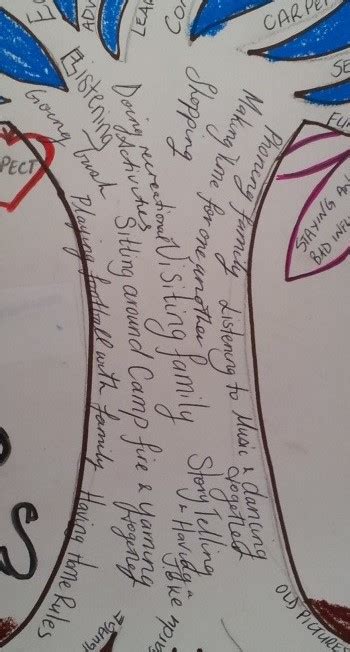 CARPET
LEA
ADV
CO
SE
FU
PECT
STAYING AW
BAD INFL
Phoning family
Listening to Music & dancing
together
Making time for one another
Story Telling
& Having a
Joke
Shopping
Visiting family
Doing recreational
Activities
Sitting around Camp fire & yarning
together
Listening
Going Bush
Playing football with family
Having Home Rules
OLD PICTURE